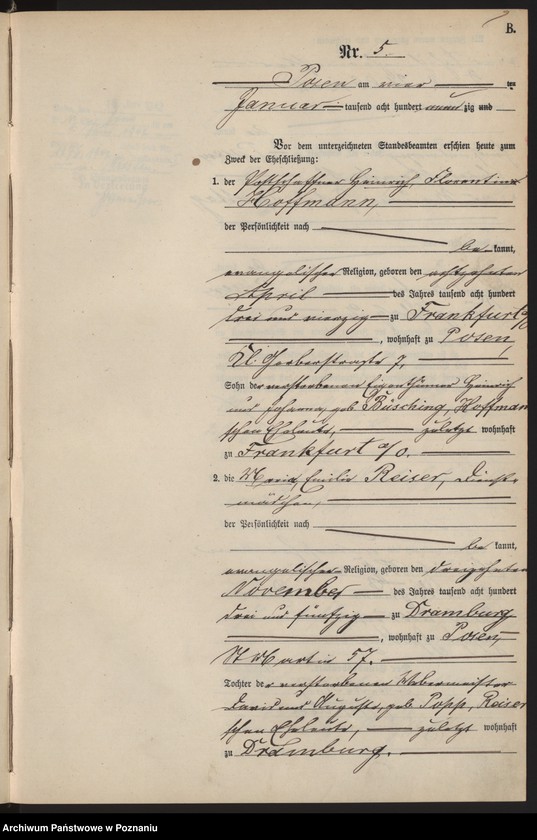 B.
Nr. 5.
Posen am vier ten
Januar tausend acht hundert neunzig und
Vor dem unterzeichneten Standesbeamten erschien heute zum
Zweck der Eheschließung:
1. der Postschaffner Heinrich, Florentin
Hoffmann,
der Persönlichkeit nach
be kannt,
evangelischer Religion, geboren den achtzehnten
April des Jahres tausend acht hundert
drei und vierzig zu Frankfurt a/O
, wohnhaft zu Posen,
Kl. Gerberstraße 7,
Sohn der verstorbenen Eigenthümer Heinrich
und Johanna, geb. Büsching, Hoffmann
schen Eheleute, zuletzt wohnhaft
zu Frankfurt a/O.
2. die Maria, Emilie Reiser, Dienst-
mädchen,
der Persönlichkeit nach
be kannt,
evangelischer Religion, geboren den dreizehnten
November des Jahres tausend acht hundert
drei und fünfzig zu Dramburg
, wohnhaft zu Posen,
St. Martin 57.
Tochter der verstorbenen Webermeister
David und Auguste, geb. Popp, Reiser
schen Eheleute, zuletzt wohnhaft
zu Dramburg.
Archiwum Państwowe w Poznaniu